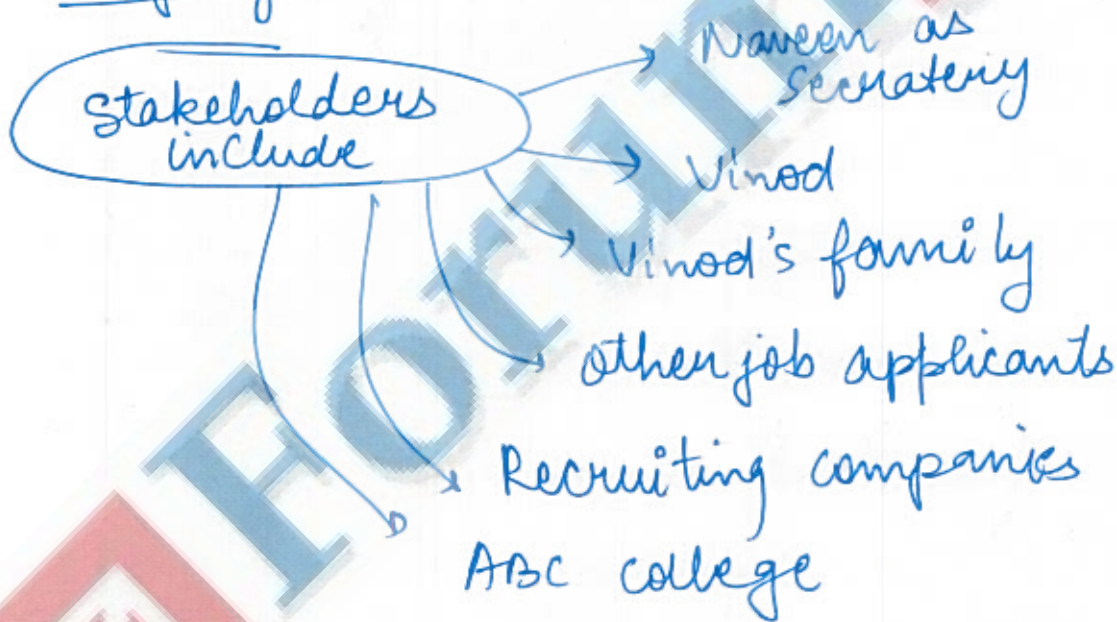 Stakeholders
include
Naveen as
Secratery
Vinod
Vinod's family
other job applicants
Recruiting companies
ABC college
Forum